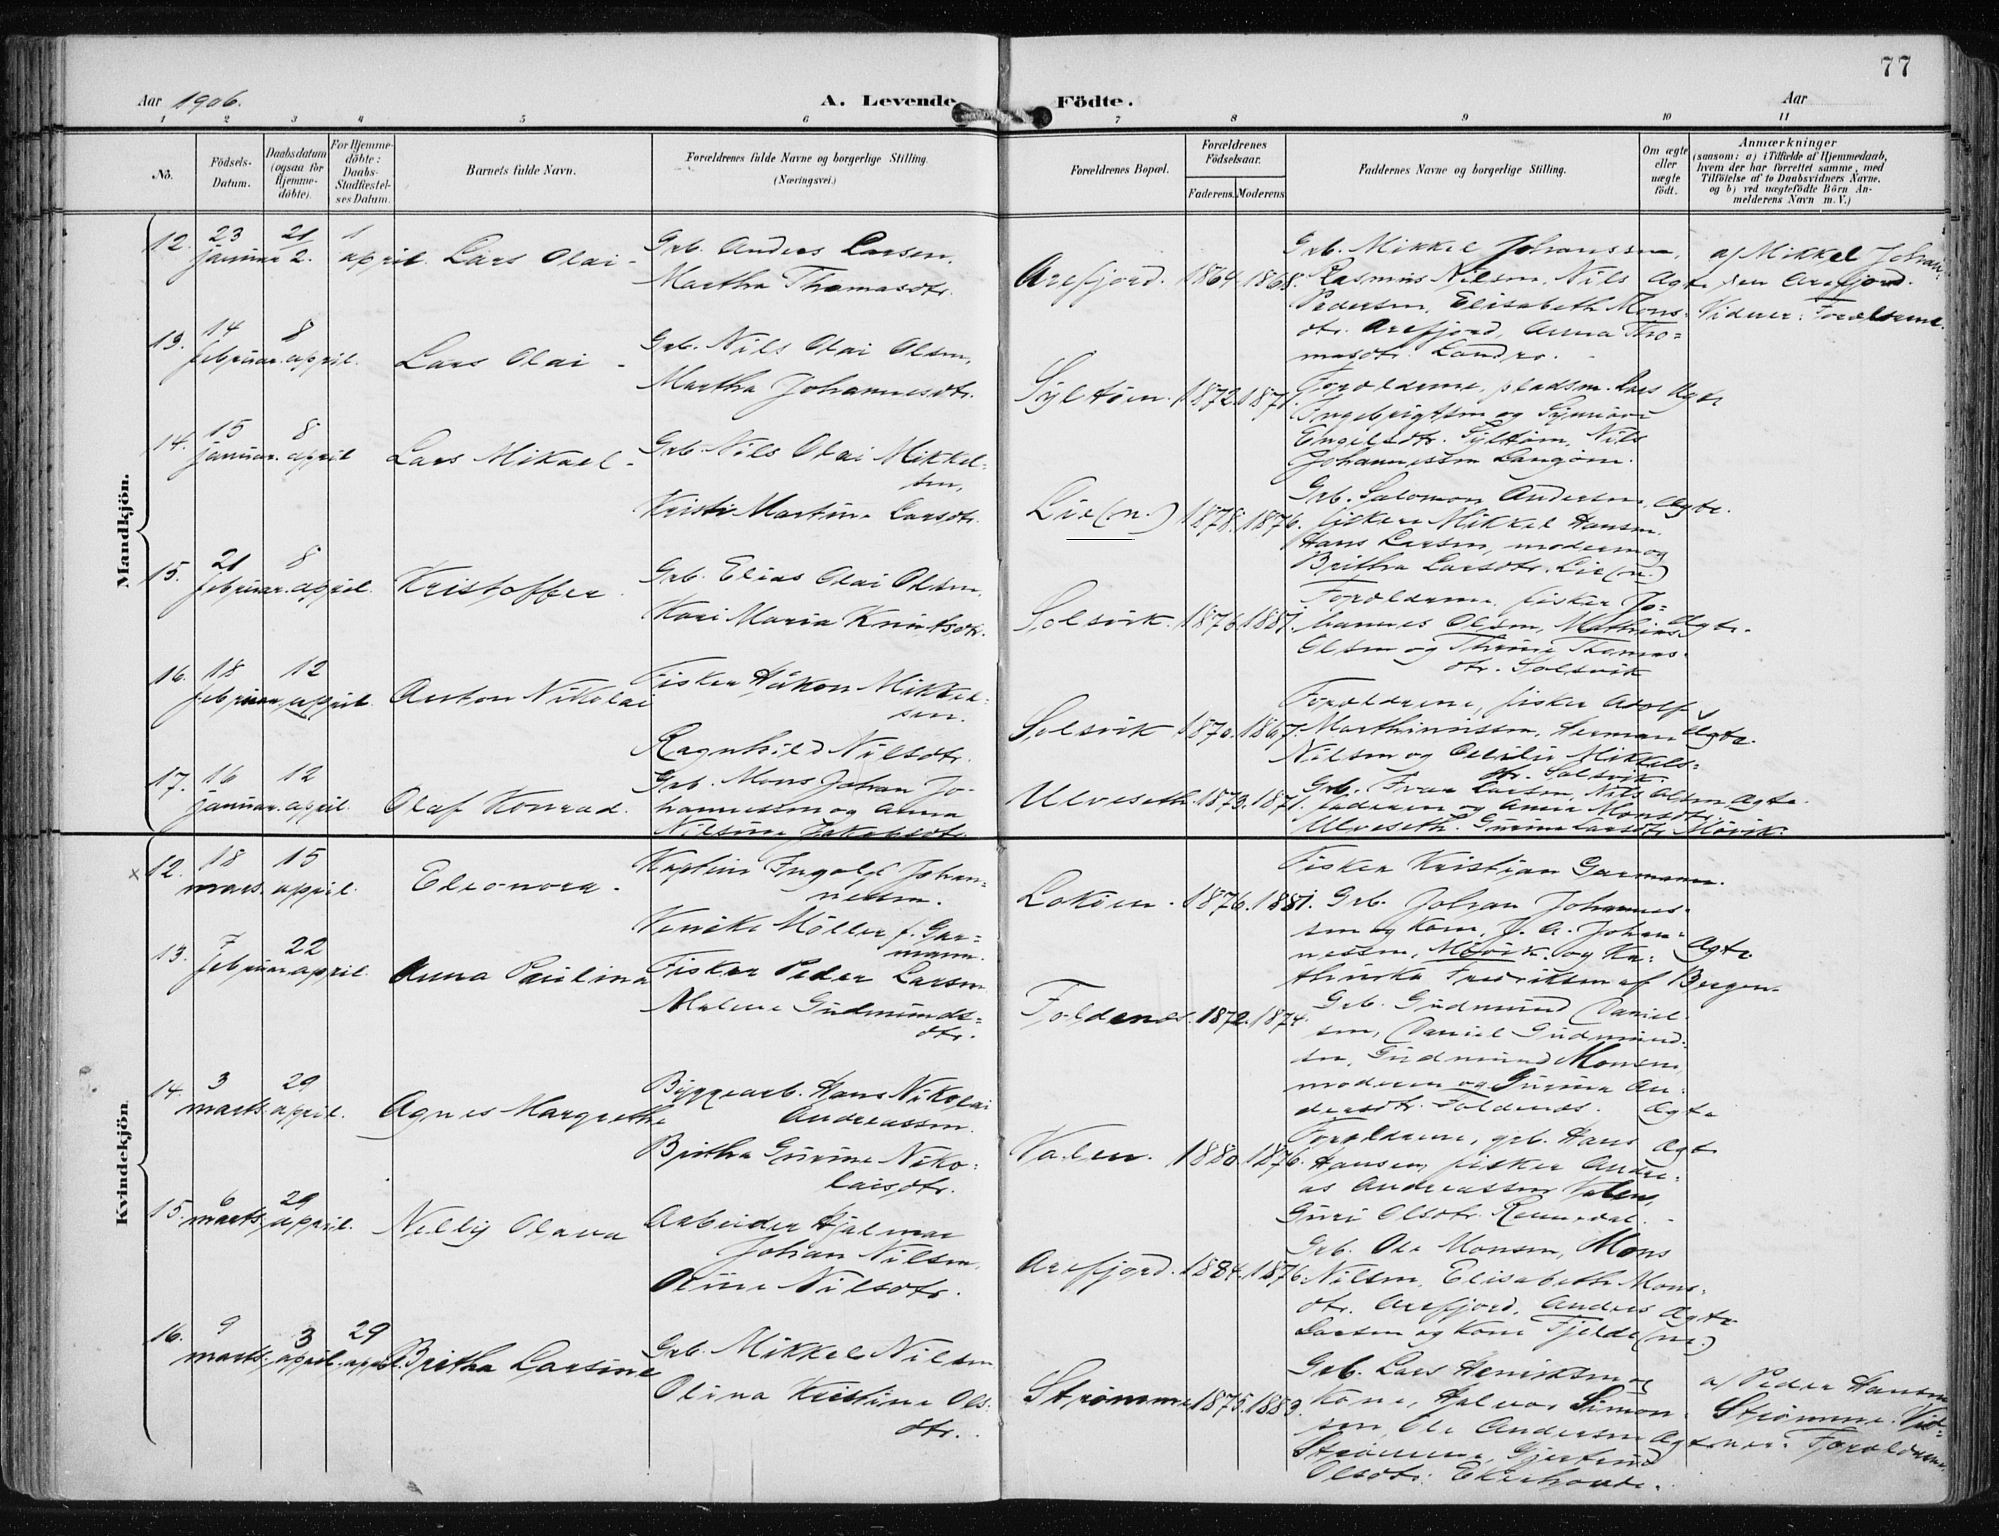 77
Aar 1906.
A. Levende Födte.
Aar
1 2 3 4 5 6 7 8 9 10 11
No.
Födsels-Datum.
Daabsdatum (ogsaa for Hjemme-döbte).
For Hjemme-döbte: Daabs-Stadfæstel-ses Datum.
Barnets fulde Navn.
Forældrenes fulde Navne og borgerlige Stilling. (Næringsvei.)
Forældrenes Bopæl.
Forældrenes Födselsaar.
Faderens. Moderens.
Faddernes Navne og borgerlige Stilling.
Om ægte eller uægte födt.
Anmærkninger
(saasom: a) i Tilfælde af Hjemmedaab, hvem der har forrettet samme, med Tilföielse af to Daabsvidners Navne, og b) ved uægtefödte Börn An-melderens Navn m.V.)
Mandkjön.
12. 23 januar 21/2. 1 april. Lars Olai -
Grb. Anders Larsen,
Martha Thomasdtr.
Arefjord. 1864. 1868.
Grb. Mikkel Johanssen,
Rasmus Nilsen, Nils
Pedersen, Elisabeth Mons-
dtr. Arefjord, Anna Tho-
masdtr. Landro.
Ægte
a) Mikkel Johan-
sen Arefjord.
Vidner: Forældrene.
13. 14 februar. 8 april. Lars Olai -
Grb. Nils Olai Olsen,
Martha Johannesdtr.
Syltøen. 1872. 1871.
Forældrene, pladsm. Lars
Ingebrigtsen og
Engelsdtr. Syltøen, Nils
Johannessen Langøen.
Ægte
14. 15 januar. 8 april Lars Mikael -
Grb. Nils Olai Mikkel-
sen,
Kristi Martine Larsdtr.
Lie (n.) 1878. 1876.
Grb. Salomon Andersen,
fisker Mikkel Hansen,
Hans Larsen, moderen og
Britha Larsdtr. Lie (n.)
Ægte.
15. 21 februar. 8 april. Kristoffer
Grb. Elias Olai Olsen,
Kari Maria Knutsdtr.
Solsvik. 1876. 1881.
Forældrene, fisker Jo-
hannes Olsen, Mathias
Olsen og Thomas-
dtr. Solsvik
Ægte.
16. 18 februar. 12 april. Anton Nikolai
Fisker Håkon Mikkel-
sen.
Ragnhild Nilsdtr.
Solsvik 1870. 1867.
Forældrene, fisker Adolf
Marthinussen, Herman
Nilsen og Cecilie Mikkels-
dtr. Solsvik.
Ægte.
17. 16 januar. 12 april. Olaf Konrad.
Grb. Mons Johan Jo-
hannessen og Anna
Nilsine Jakobsdtr.
Ulveseth. 1873. 1871.
Grb. Ivar Larsen, Nils Olsen
faderen og Anna Monsdtr.
Ulveseth. Gurine Larsdtr. Møvik.
Ægte.
Kvindekjön.
x
12. 18 mars. 15 april. Eleonora -
Kaptein Ingolf Johan-
nessen.
Møller f. Gar-
mann.
Lokøen. 1876. 1881.
Fisker Kristian Garmann.
Grb. Johan Johannes-
sen og kone, J. A. Johan-
nessen, Møvik. og Ka-
thinka Fredriksen af Bergen.
Ægte
13. 7 februar 22 april. Anna Paulina
Fisker Peder Larsen
Malene Gudmunds-
dtr.
Foldenes. 1872. 1874.
Grb. Gudmund Daniel-
sen, Daniel Gudmund-
sen, Gudmund Monsen,
moderen og Gurina An-
dersdtr. Foldenes.
Ægte
14. 3 marts. 29 april. Agnes Margrethe
Byggearb. Hans Nikolai
Andreassen.
Britha Gurine Niko-
laisdtr.
Valen. 1880. 1876.
Forældrene, grb. Hans
Hansen, fisker Andre-
as Andreassen Valen,
Guri Olsdtr.
Ægte
15. 6 marts. 29 april. Nelly Olava
Arbeider Hjalmar
Johan Nilsen,
Oline Nilsdtr.
Arefjord. 1884. 1876.
Grb. Ole Monsen, Mons
Nilsen, Elisabeth Mons-
dtr. Arefjord, Anders
Larsen og kone Fjelde (m.)
Ægte
16. 9 marts. 3 april. 29 april. Britha Larsine
Grb. Mikkel Nilsen
Olina Kristine Ols-
dtr.
Strømme 1875. 1883.
Grb. Lars Henriksen og
kone, Halvor Simon-
sen, Ole Andersen
Strømme, Gjertrud
Olsdtr. Ekerhovde.
Ægte
a) Peder Hansen
Strømme. Vid-
ner: Forældrene.